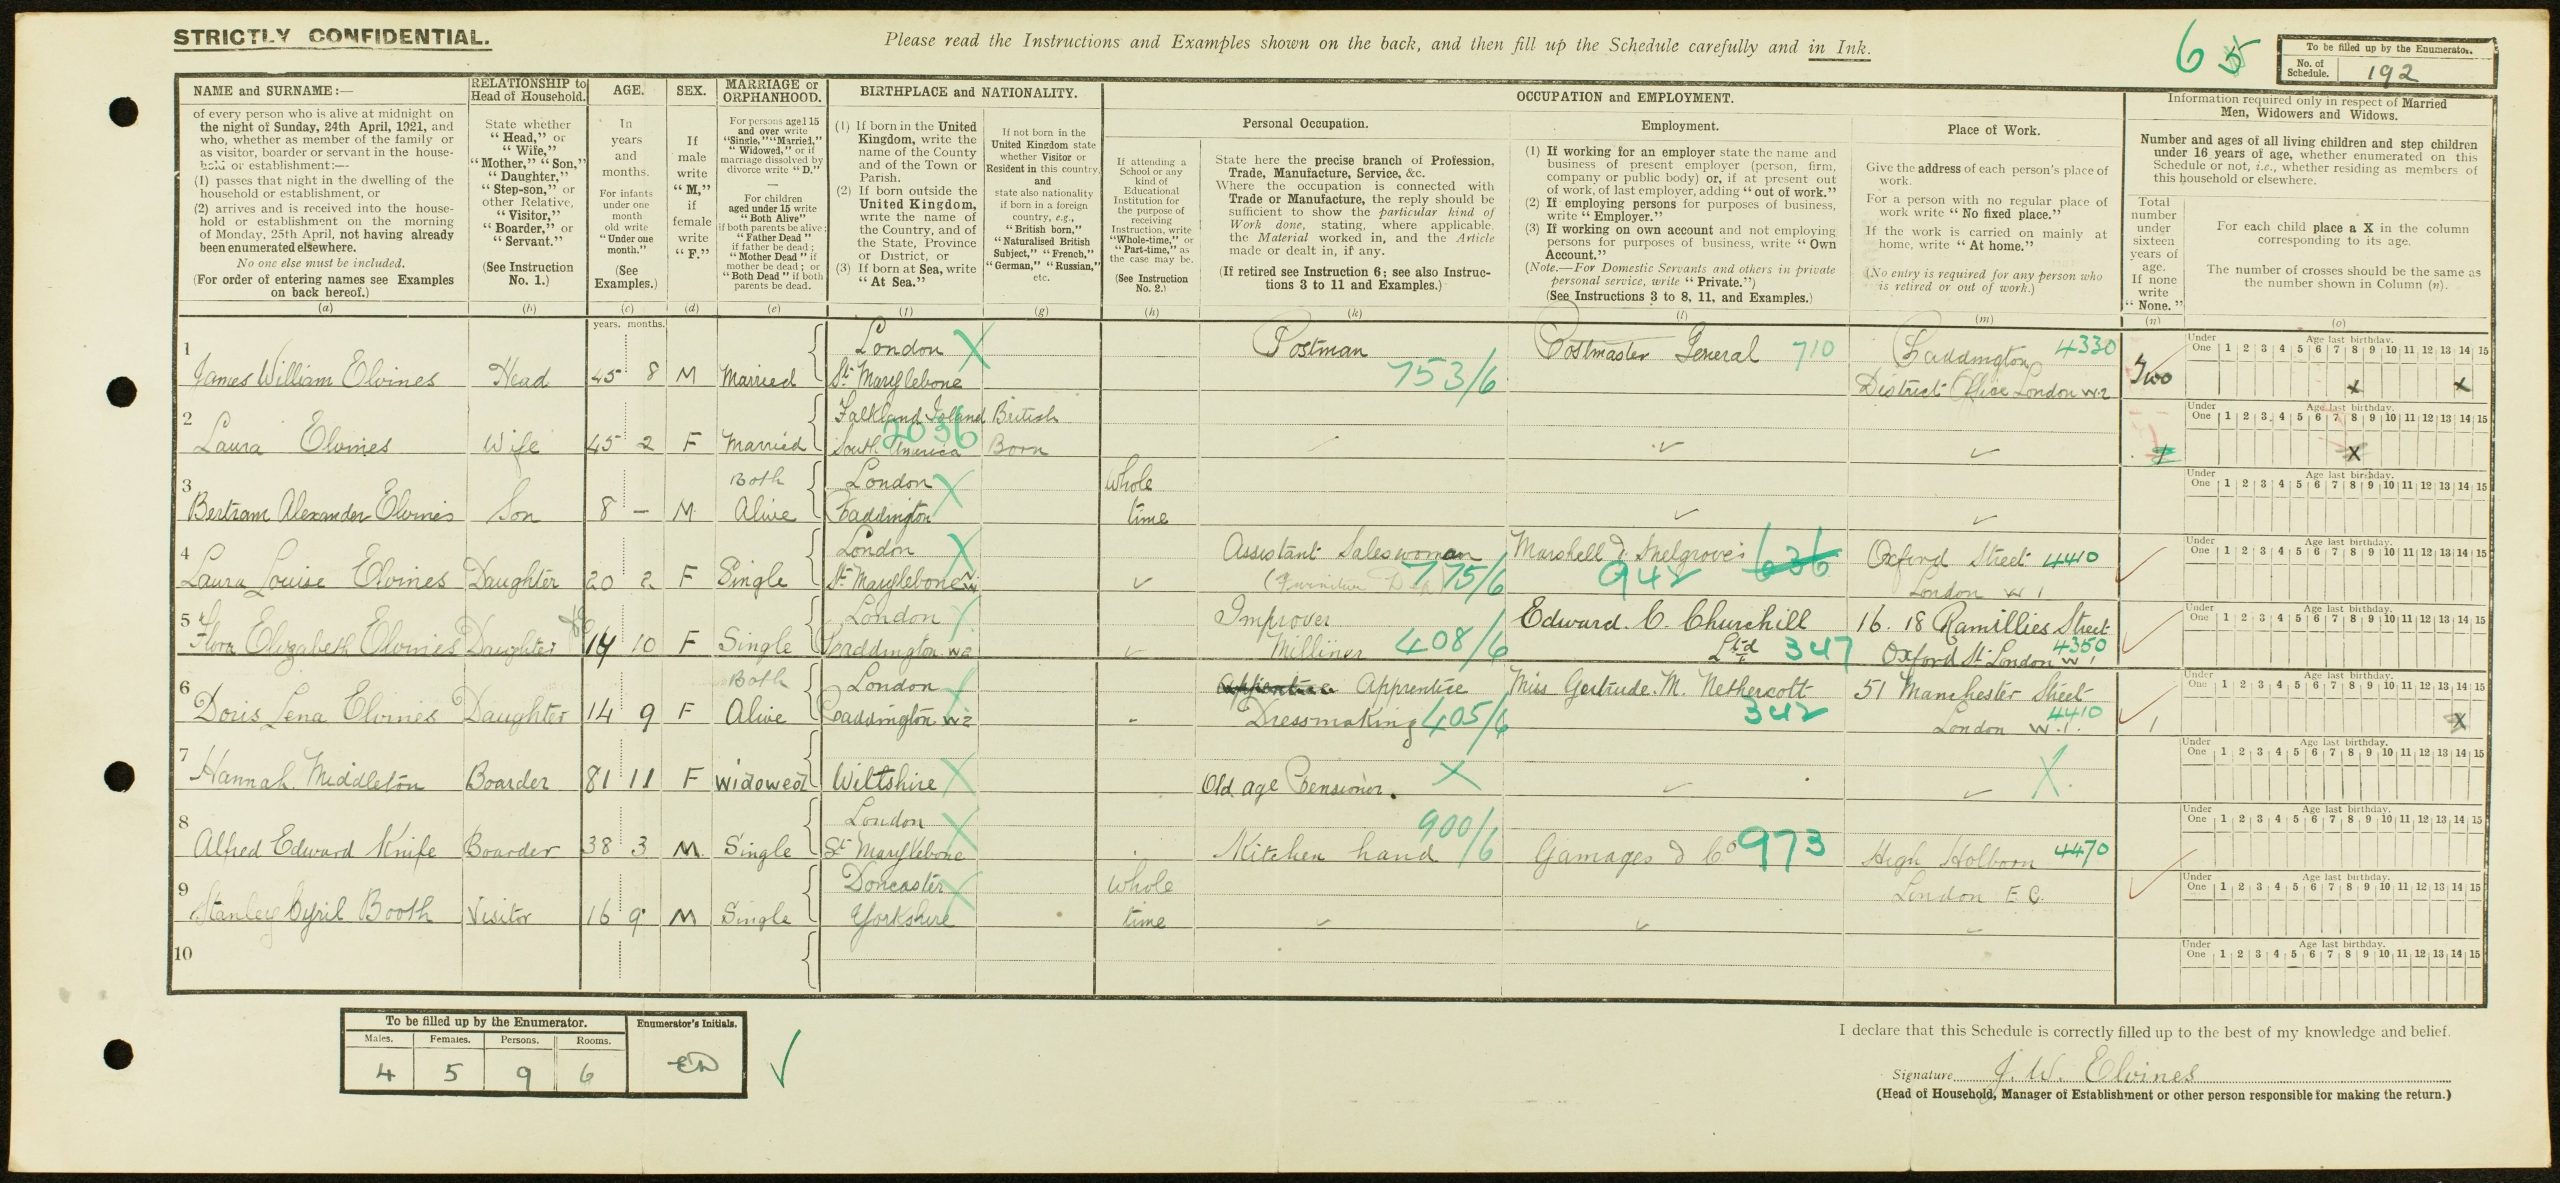 STRICTLY CONFIDENTIAL.
Please read the Instructions and Examples shown on the back, and then fill up the Schedule carefully and in Ink.
6 5
To be filled up by the Enumerator.
No. of Schedule. 192
NAME and SURNAME:—
of every person who is alive at midnight on
the night of Sunday, 24th April, 1921, and
who, whether as member of the family or
as visitor, boarder or servant in the house-
hold or establishment:—
(1) passes that night in the dwelling of the
household or establishment, or
(2) arrives and is received into the house-
hold or establishment on the morning
of Monday, 25th April, not having already
been enumerated elsewhere.
No one else must be included.
(For order of entering names see Examples
on back hereof.)
(a)
RELATIONSHIP to
Head of Household.
State whether
"Head," or
"Wife,"
"Mother," "Son,"
"Daughter,"
"Step-son," or
other Relative,
"Visitor,"
"Boarder," or
"Servant."
(See Instruction
No. 1.)
(b)
AGE.
In
years
and
months.
For infants
under one
month
old write
"Under one
month."
(See
Examples.)
(c)
SEX.
If
male
write
"M,"
if
female
write
"F."
(d)
MARRIAGE or
ORPHANHOOD.
For persons aged 15
and over write
"Single," "Married,"
"Widowed," or if
marriage dissolved by
divorce write "D."
For children
aged under 15 write
"Both Alive"
if both parents be alive;
"Father Dead"
if father be dead;
"Mother Dead" if
mother be dead; or
"Both Dead" if both
parents be dead.
(e)
BIRTHPLACE and NATIONALITY.
(1) If born in the United
Kingdom, write the
name of the County
and of the Town or
Parish.
(2) If born outside the
United Kingdom,
write the name of
the Country, and of
the State, Province
or District, or
(3) If born at Sea, write
"At Sea."
(f)
If not born in the
United Kingdom state
whether Visitor or
Resident in this country,
and
state also nationality
if born in a foreign
country, e.g.,
"British born,"
"Naturalised British
Subject," "French,"
"German," "Russian,"
etc.
(g)
OCCUPATION and EMPLOYMENT.
If attending a
School or any
kind of
Educational
Institution for
the purpose of
receiving
Instruction, write
"Whole-time," or
"Part-time," as
the case may be.
(See Instruction
No. 2.)
(h)
Personal Occupation.
State here the precise branch of Profession,
Trade, Manufacture, Service, &c.
Where the occupation is connected with
Trade or Manufacture, the reply should be
sufficient to show the particular kind of
Work done, stating, where applicable,
the Material worked in, and the Article
made or dealt in, if any.
(If retired see Instruction 6; see also Instruc-
tions 3 to 11 and Examples.)
(k)
Employment.
(1) If working for an employer state the name and
business of present employer (person, firm,
company or public body) or, if at present out
of work, of last employer, adding "out of work."
(2) If employing persons for purposes of business,
write "Employer."
(3) If working on own account and not employing
persons for purposes of business, write "Own
Account."
(Note.—For Domestic Servants and others in private
personal service, write "Private.")
(See Instructions 3 to 8, 11, and Examples.)
(l)
Place of Work.
Give the address of each person's place of
work.
For a person with no regular place of
work write "No fixed place."
If the work is carried on mainly at
home, write "At home."
(No entry is required for any person who
is retired or out of work.)
(m)
Information required only in respect of Married
Men, Widowers and Widows.
Number and ages of all living children and step children
under 16 years of age, whether enumerated on this
Schedule or not, i.e., whether residing as members of
this household or elsewhere.
Total
number
under
sixteen
years of
age.
If none
write
"None."
(n)
For each child place a X in the column
corresponding to its age.
The number of crosses should be the same as
the number shown in Column (n).
(o)
years. months.
1 James William Elvines Head 45 8 M Married London St. Marylebone Postman 753/6 Postmaster General 710 Paddington 4330 District Office London W.2 Two
Under One Age last birthday. 1 2 3 4 5 6 7 8 9 10 11 12 13 14 15 X X
2 Laura Elvines Wife 45 2 F Married Falkland Island South America 2036 British Born
Under One Age last birthday. 1 2 3 4 5 6 7 8 9 10 11 12 13 14 15 X
3 Bertram Alexander Elvines Son 8 — M Both Alive London Paddington Whole time
Under One Age last birthday. 1 2 3 4 5 6 7 8 9 10 11 12 13 14 15
4 Laura Louise Elvines Daughter 20 2 F Single London St. Marylebone W. Assistant Saleswoman 775/6 Marshell & Snelgrove's 636 942 Oxford Street 4410 London W 1
Under One Age last birthday. 1 2 3 4 5 6 7 8 9 10 11 12 13 14 15
5 Flora Elizabeth Elvines Daughter 10 F Single London Paddington W2 Improver Milliner 408/6 Edward. C. Churchill Ltd 347 16. 18 Ramillies Street 4350 Oxford St. London W 1
Under One Age last birthday. 1 2 3 4 5 6 7 8 9 10 11 12 13 14 15
6 Doris Lena Elvines Daughter 14 9 F Both Alive London Paddington W2 Apprentice Dressmaking 405/6 Miss Gertrude. M. Nethercott 342 51 Manchester Street 4410 London W.1. 1
Under One Age last birthday. 1 2 3 4 5 6 7 8 9 10 11 12 13 14 15 X
7 Hannah Middleton Boarder 81 11 F Widowed Wiltshire Old age Pensioner.
Under One Age last birthday. 1 2 3 4 5 6 7 8 9 10 11 12 13 14 15
8 Alfred Edward Knife Boarder 38 3 M Single London St. Marylebone Kitchen hand 900/6 Gamages & Co 973 High Holborn 4470 London E C.
Under One Age last birthday. 1 2 3 4 5 6 7 8 9 10 11 12 13 14 15
9 Stanley Cyril Booth Visitor 16 9 M Single Doncaster Yorkshire Whole time
Under One Age last birthday. 1 2 3 4 5 6 7 8 9 10 11 12 13 14 15
10
Under One Age last birthday. 1 2 3 4 5 6 7 8 9 10 11 12 13 14 15
To be filled up by the Enumerator.
Males. Females. Persons. Rooms.
4 5 9 6
Enumerator's Initials.
I declare that this Schedule is correctly filled up to the best of my knowledge and belief.
Signature J. W. Elvines
(Head of Household, Manager of Establishment or other person responsible for making the return.)